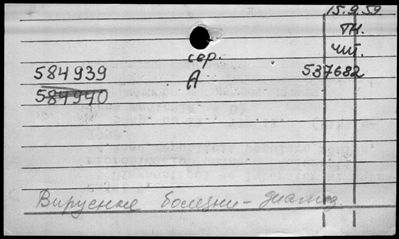 15.9.59
ТН.
чит.
сер.
584939
А
537682
584940
Вирусные болезни - диагноз.